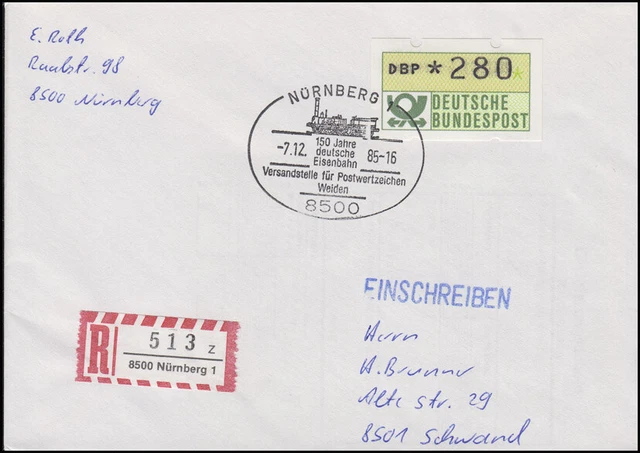 E. Roth
Raabstr. 98
8500 Nürnberg
DBP *280*
DEUTSCHE
BUNDESPOST
NÜRNBERG
-7.12. 150 Jahre deutsche Eisenbahn 85-16
Versandstelle für Postwertzeichen
Weiden
8500
EINSCHREIBEN
R 513 z
8500 Nürnberg 1
Herrn
H. Brunner
Alte Str. 29
8501 Schwand